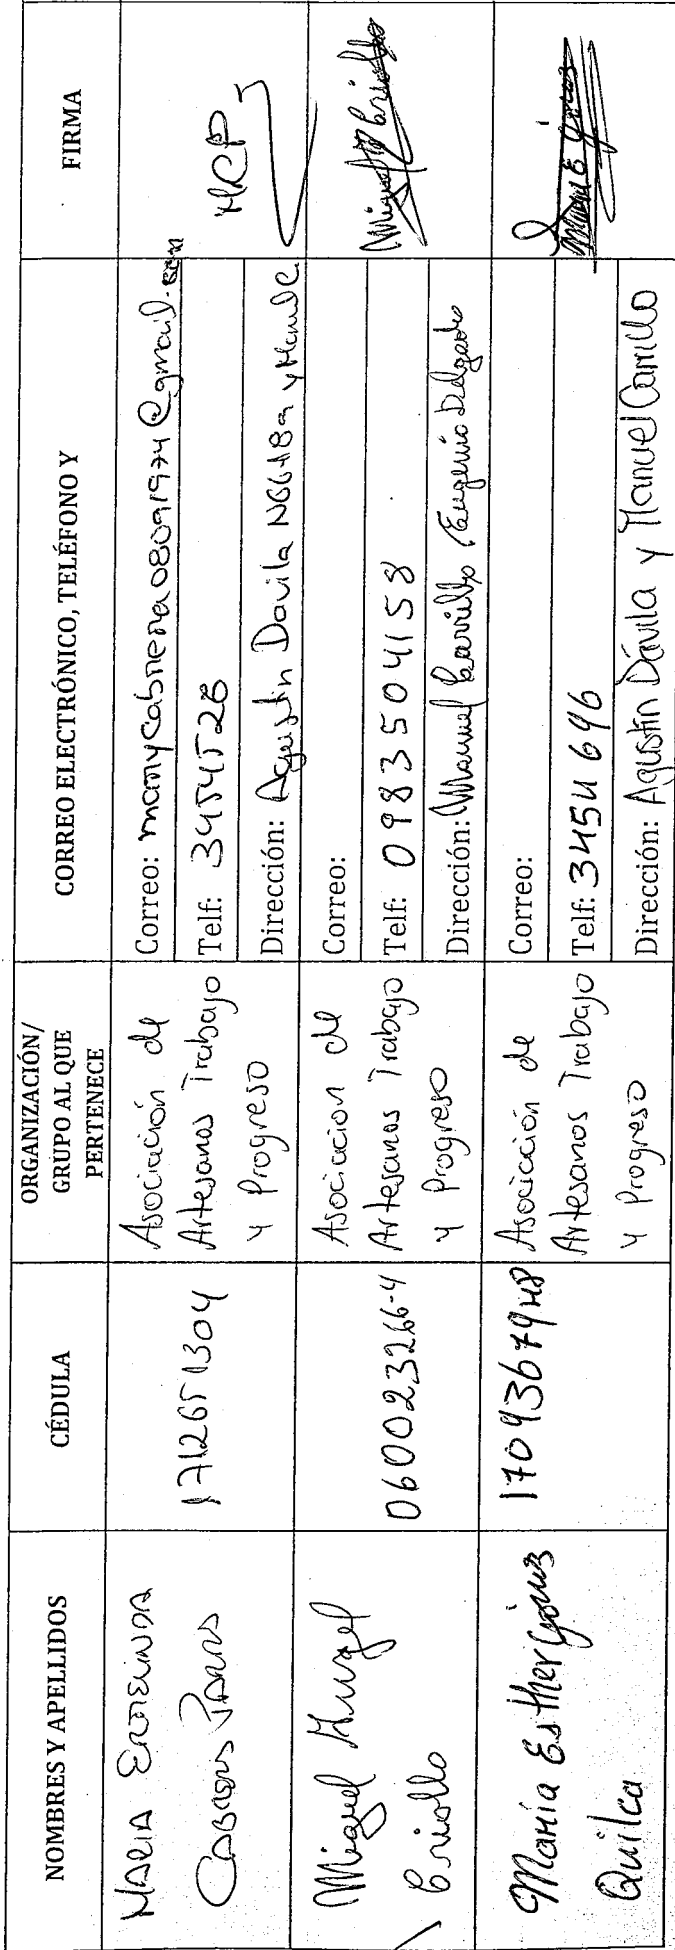 NOMBRES Y APELLIDOS
CÉDULA
ORGANIZACIÓN/
GRUPO AL QUE
PERTENECE
CORREO ELECTRÓNICO, TELÉFONO Y
FIRMA
MARIA
1712651304
Asociación de
Artesanos Trabajo
y Progreso
Correo:
Telf: 3454526
Dirección: Agustin Davila
MCP
Miguel Angel
Criollo
060023266-4
Asociacion de
Artesanos Trabajo
y Progreso
Correo:
Telf: 0983504158
Dirección: Manuel Carrillo Eugenio Delgado
Miguel A Criollo
María Esther Gómez
Quilca
Asociación de
Artesanos Trabajo
y Progreso
Correo:
Telf: 3454696
Dirección: Agustin Dávila y Manuel Carrillo